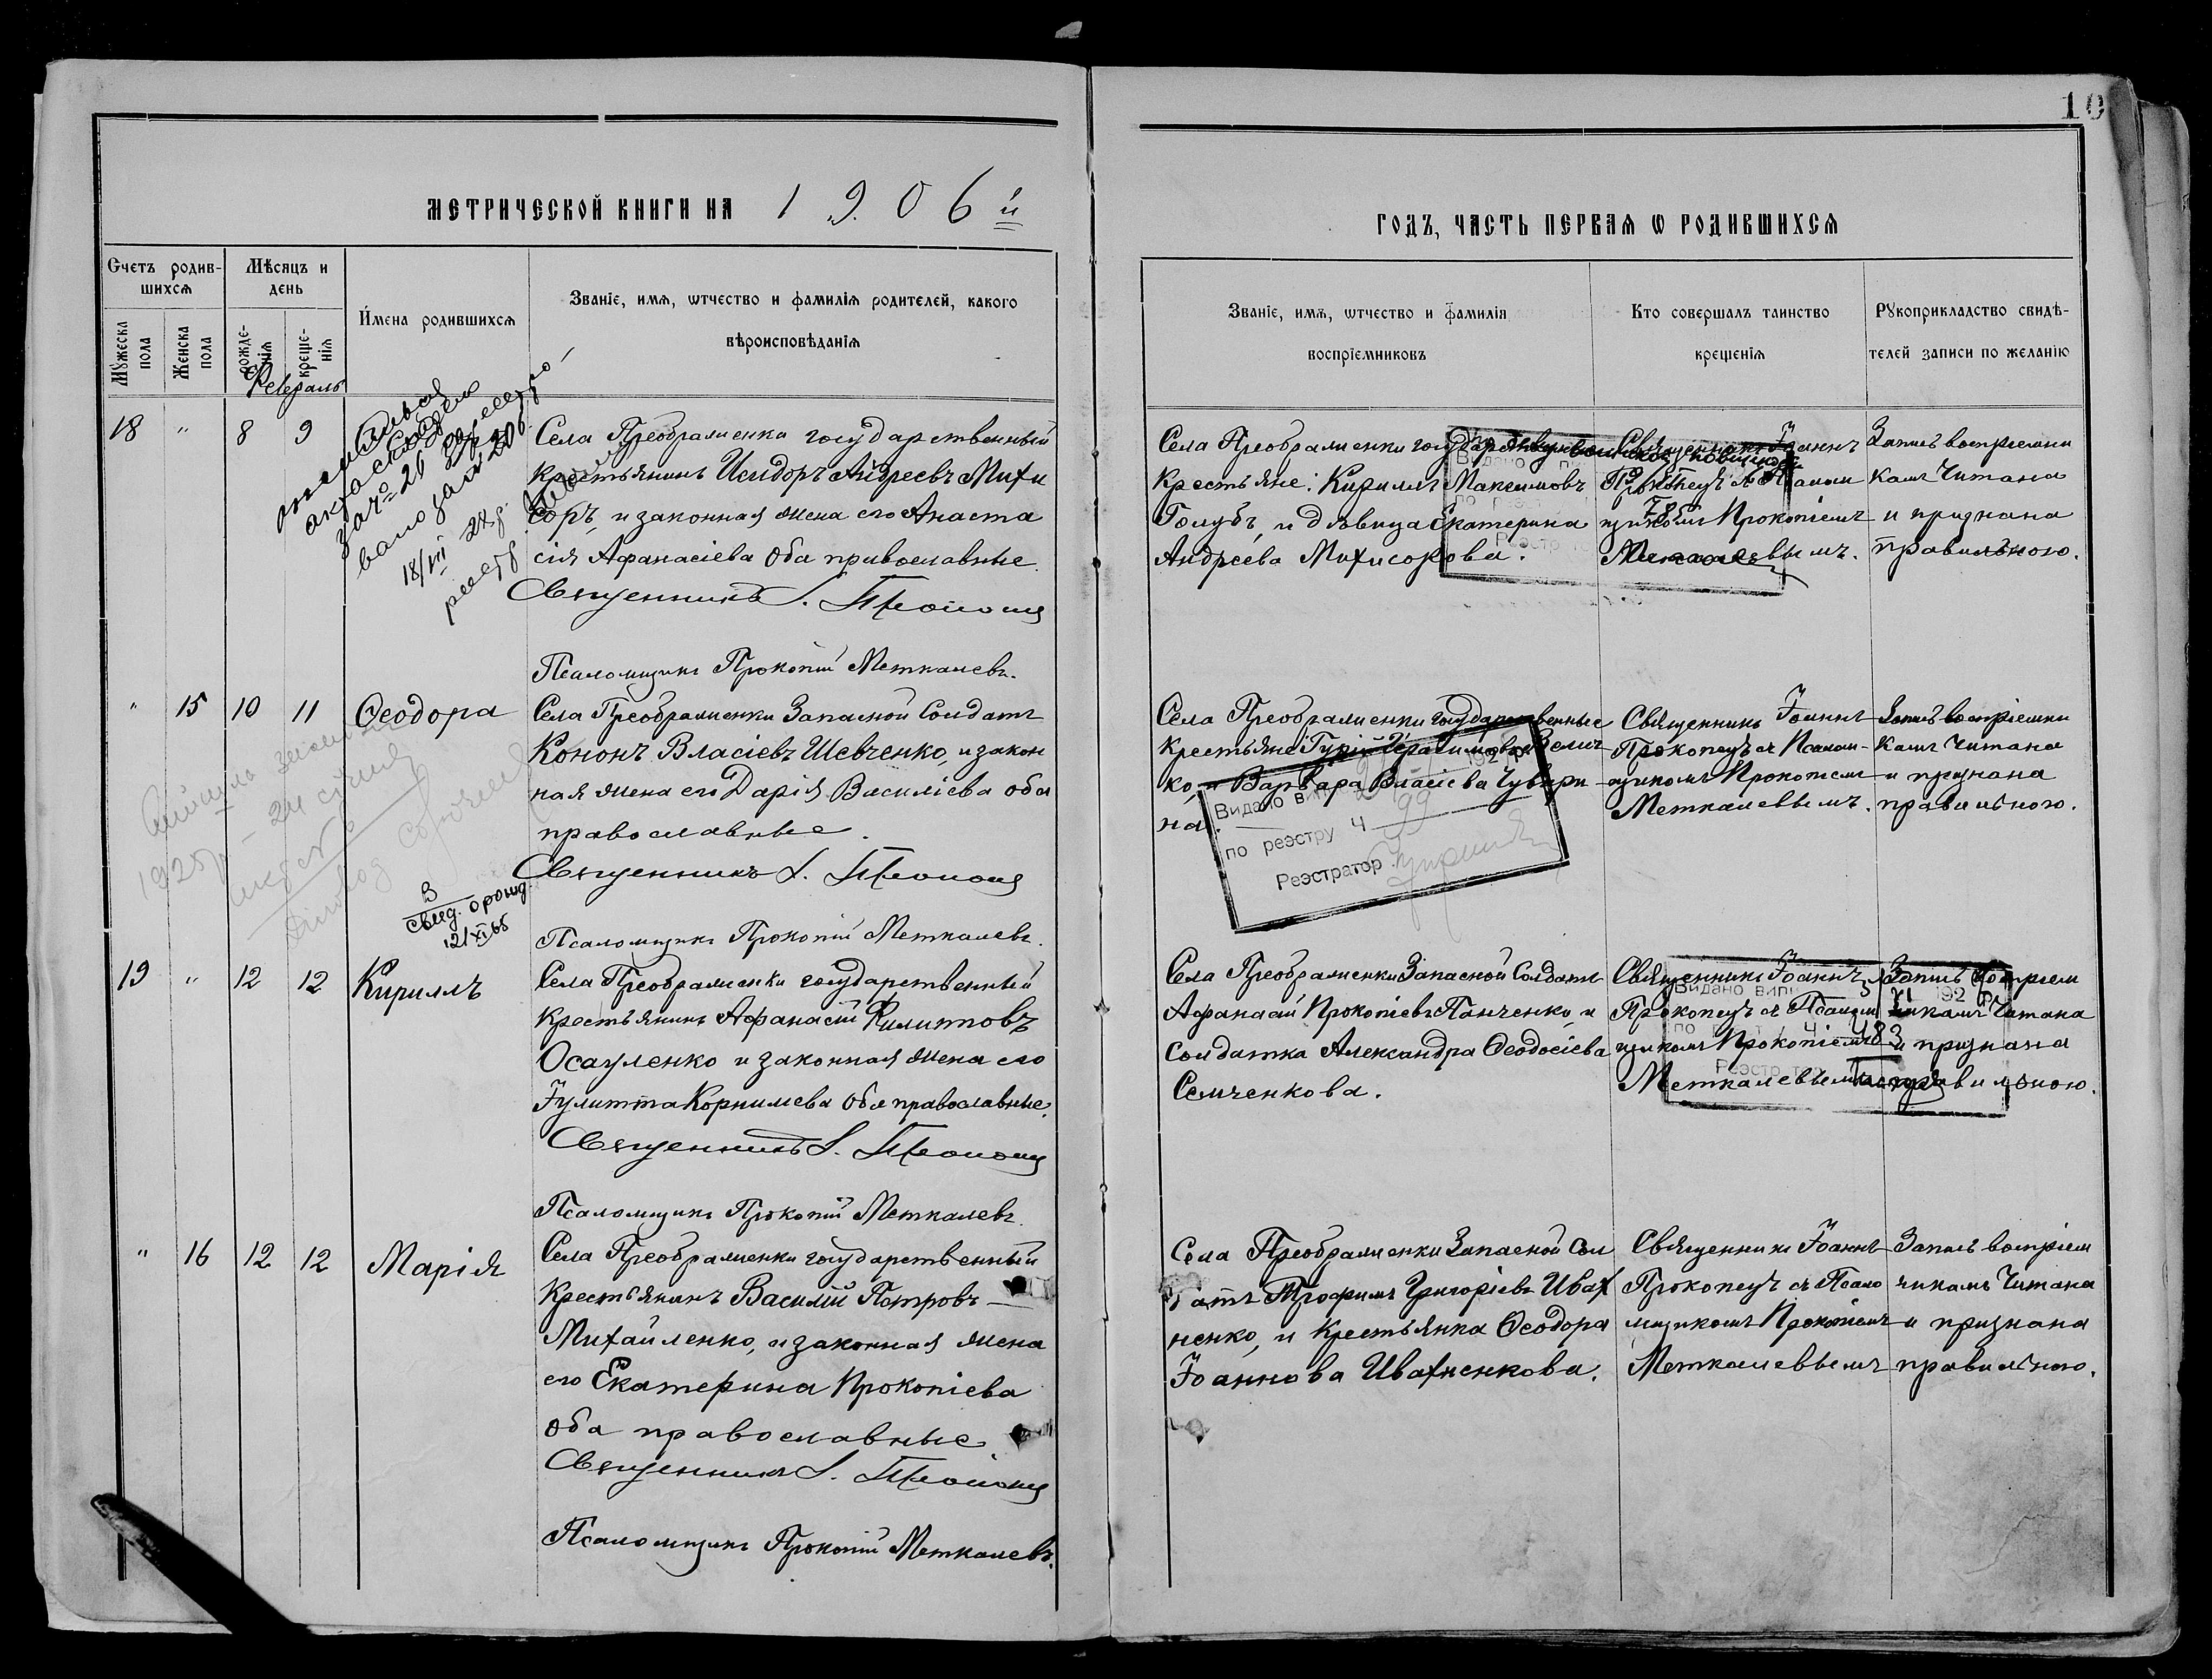 10
МЕТРИЧЕСКОЙ КНИГИ НА 1906 й
ГОДЪ, ЧАСТЬ ПЕРВАЯ Ѡ РОДИВШИХСЯ
Счетъ родив-
шихсѧ
Мѣсяцъ и
день
Мꙋжеска
пола
Женска
пола
рожде-
нія
креще-
нія
Имена родившихсѧ
Званіе, имѧ, ѡтчество и фамилія родителей, какого
вѣроисповѣданіѧ
Званіе, имѧ, ѡтчество и фамилія
воспріемниковъ
Кто совершалъ таинство
крещеніѧ
Рꙋкоприкладство свидѣ-
телей записи по желанію
Февраль
18 " 8 9
18/VII 24 р.
реестр
Села Преображенки государственный
крестьянинъ Исидоръ Андреевъ Мохи
соръ, и законная жена его Анаста
сія Афанасіева оба православные
Священникъ І. Прокопец
Псаломщикъ Прокопій Меткалевъ.
Села Преображенки государственные
крестьяне: Кириллъ Максимовъ
Голубъ, и дѣвица Екатерина
Андреева Мохисорова.
Священникъ Іоаннъ
Прокопецъ съ Псалом
щикомъ Прокопіемъ
Меткалевымъ.
Запись воспріемни
камъ читана
и признана
правильною.
" 15 10 11 Ѳеодора
Села Преображенки Запасной Солдатъ
Кононъ Власіевъ Шевченко, и закон
ная жена его Дарія Василіева оба
православные.
Священникъ І. Прокопец
Псаломщикъ Прокопій Меткалевъ.
Села Преображенки государственные
крестьяне: Гурій Герасимовъ Велич
ко, и Варвара Власіева Чубари
на.
Видано вип 192
по реэстру Ч 99
Реэстратор
Священникъ Іоаннъ
Прокопецъ съ Псалом-
щикомъ Прокопіемъ
Меткалевымъ.
Запись воспріемни
камъ читана
и признана
правильною.
1925р
В
свид. о рожд.
12/XI 65
19 " 12 12 Кириллъ
Села Преображенки государственный
крестьянинъ Афанасій Филиповъ
Осауленко и законная жена его
Іулитта Корнилева оба православные.
Священникъ І. Прокопец
Псаломщикъ Прокопій Меткалевъ.
Села Преображенки Запасной Солдатъ
Афанасій Прокопіевъ Панченко, и
Солдатка Александра Ѳеодосіева
Семченкова.
Священникъ Іоаннъ
Прокопецъ съ Псалом
щикомъ Прокопіемъ
Меткалевымъ
Запись воспріем
никамъ читана
и признана
правильною.
Видано вип 192
по Ч 483
" 16 12 12 Марія
Села Преображенки государственный
Крестьянинъ Василій Петровъ
Михайленко, и законная жена
его Екатерина Прокопіева
оба православные.
Священникъ І. Прокопец
Псаломщикъ Прокопій Меткалевъ.
Села Преображенки Запасной Сол
датъ Трофимъ Григоріевъ Ивах
ненко, и крестьянка Ѳеодора
Іоаннова Ивахненкова.
Священникъ Іоаннъ
Прокопецъ съ Псало
мщикомъ Прокопіемъ
Меткалевымъ
Запись воспріем
никамъ читана
и признана
правильною.